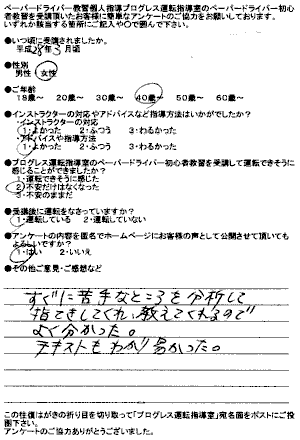 ペーパードライバー教習個人指導プログレス運転指導室のペーパードライバー初心
者教習を受講頂いたお客様に簡単なアンケートのご協力をお願いしております。
いずれか該当する箇所にご記入や〇で囲んで下さい。
●いつ頃に受講されましたか。
平成28年3月頃
●性別
男性 女性
●ご年齢
18歳～ 20歳～ 30歳～ 40歳～ 50歳～ 60歳～
●インストラクターの対応やアドバイスなど指導方法はいかがでしたか？
・インストラクターの対応
1・よかった 2・ふつう 3・わるかった
・アドバイスや指導方法
1・よかった 2・ふつう 3・わるかった
●プログレス運転指導室のペーパードライバー初心者教習を受講して運転できそうに
感じることができましたか？
1・運転できそうに感じた
2・不安だけはなくなった
3・不安のままだ
●受講後に運転をなさっていますか？
1・運転している 2・運転していない
●アンケートの内容を匿名でホームページにお客様の声として公開させて頂いても
よろしいですか？
1・はい 2・いいえ
●その他ご意見・ご感想など
すぐに苦手なところを分析して
指てきしてくれ、教えてくれるので
よく分かった。
テキストもわかり易かった。
この往復はがきの折り目を切り取って「プログレス運転指導室」宛名面をポストにご投
函下さい。
アンケートのご協力ありがとうございました。